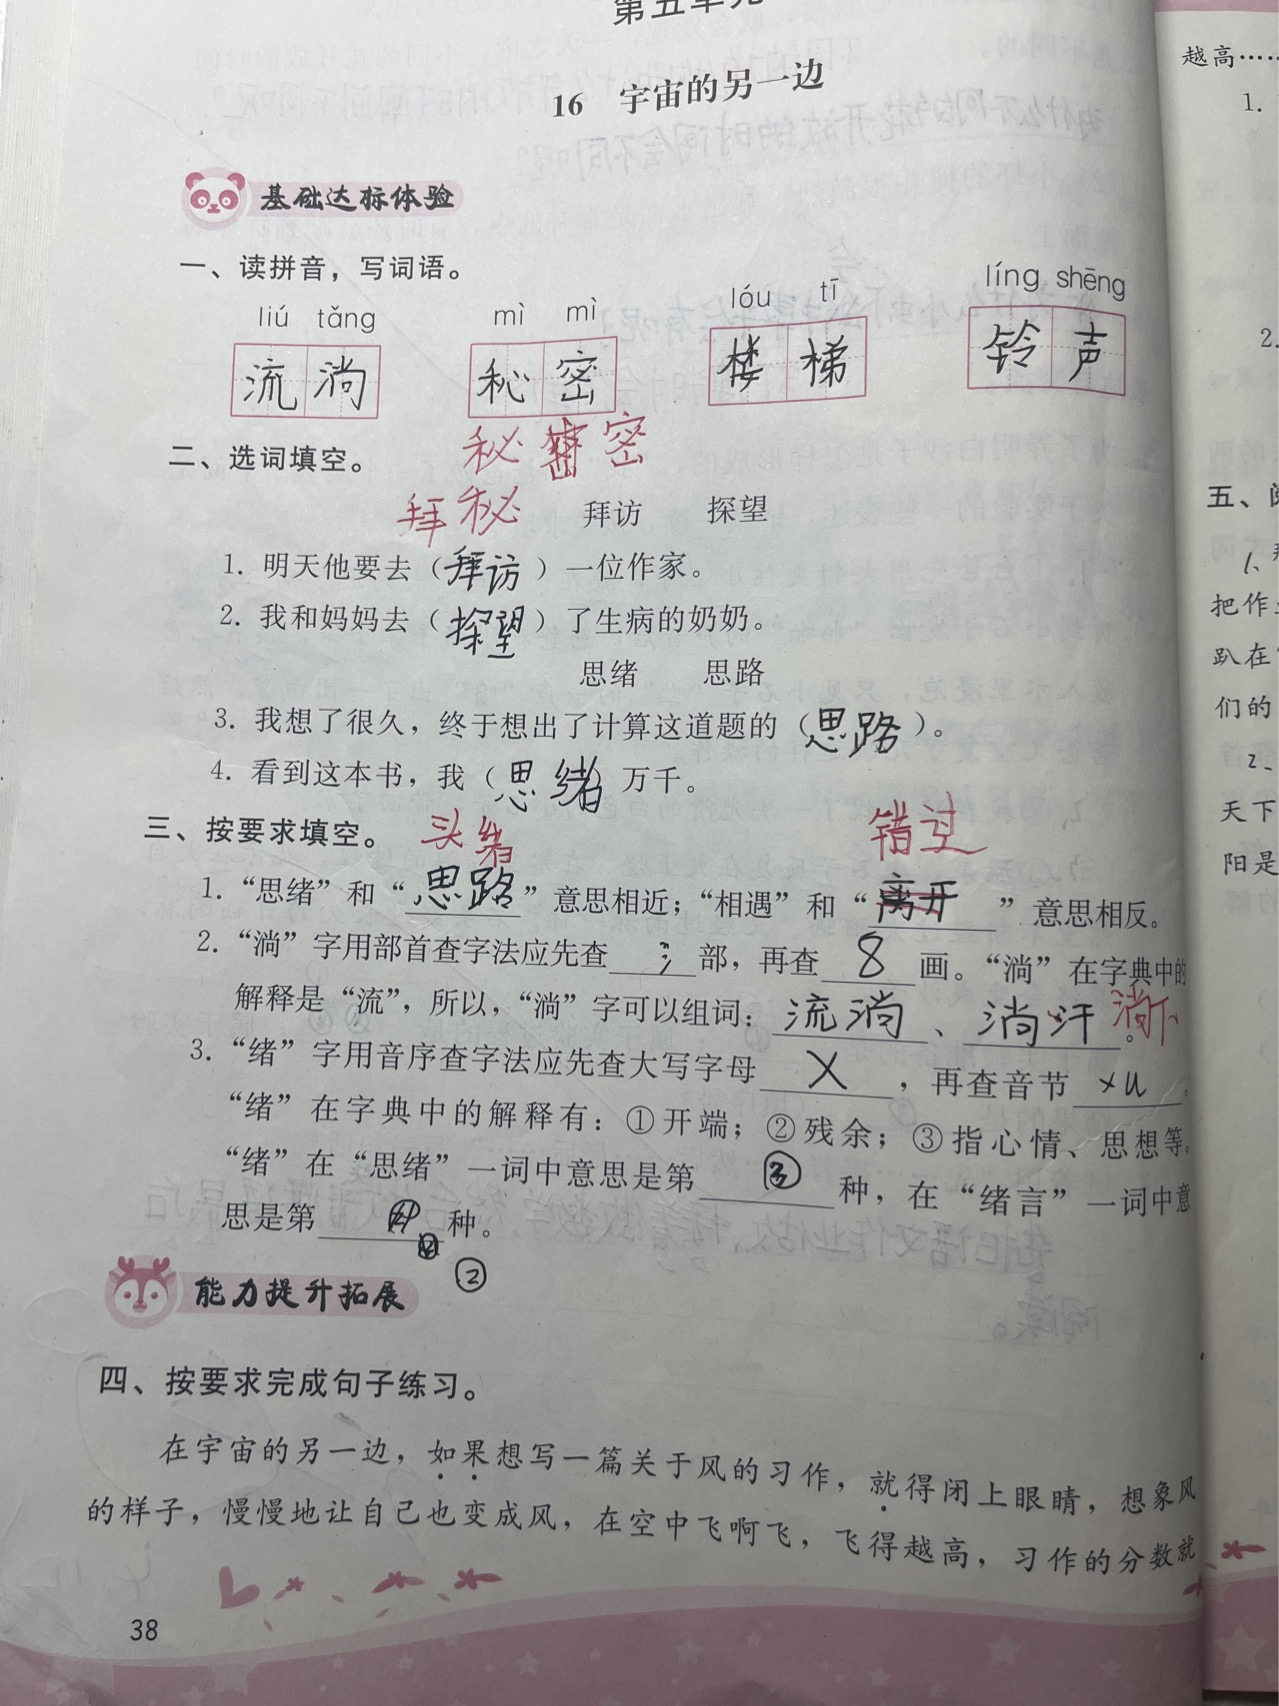 第五单元
16 宇宙的另一边
基础达标体验
一、读拼音，写词语。
liú tǎng mì mì lóu tī líng shēng
流淌 秘密 楼梯 铃声
秘 密
二、选词填空。
拜 秘 拜访 探望
1. 明天他要去（拜访）一位作家。
2. 我和妈妈去（探望）了生病的奶奶。
思绪 思路
3. 我想了很久，终于想出了计算这道题的（思路）。
4. 看到这本书，我（思绪）万千。
三、按要求填空。 头绪 错过
1. “思绪”和“思路”意思相近；“相遇”和“离开”意思相反。
2. “淌”字用部首查字法应先查氵部，再查8画。“淌”在字典中的
解释是“流”，所以，“淌”字可以组词：流淌、淌汗。淌下
3. “绪”字用音序查字法应先查大写字母X，再查音节xu。
“绪”在字典中的解释有：①开端；②残余；③指心情、思想等。
“绪”在“思绪”一词中意思是第③种，在“绪言”一词中意
思是第 种。
②
能力提升拓展
四、按要求完成句子练习。
在宇宙的另一边，如果想写一篇关于风的习作，就得闭上眼睛，想象风
的样子，慢慢地让自己也变成风，在空中飞啊飞，飞得越高，习作的分数就
38
越高……
1.
2.
五、
1、
把作
趴在
们的
2、
天下
阳是